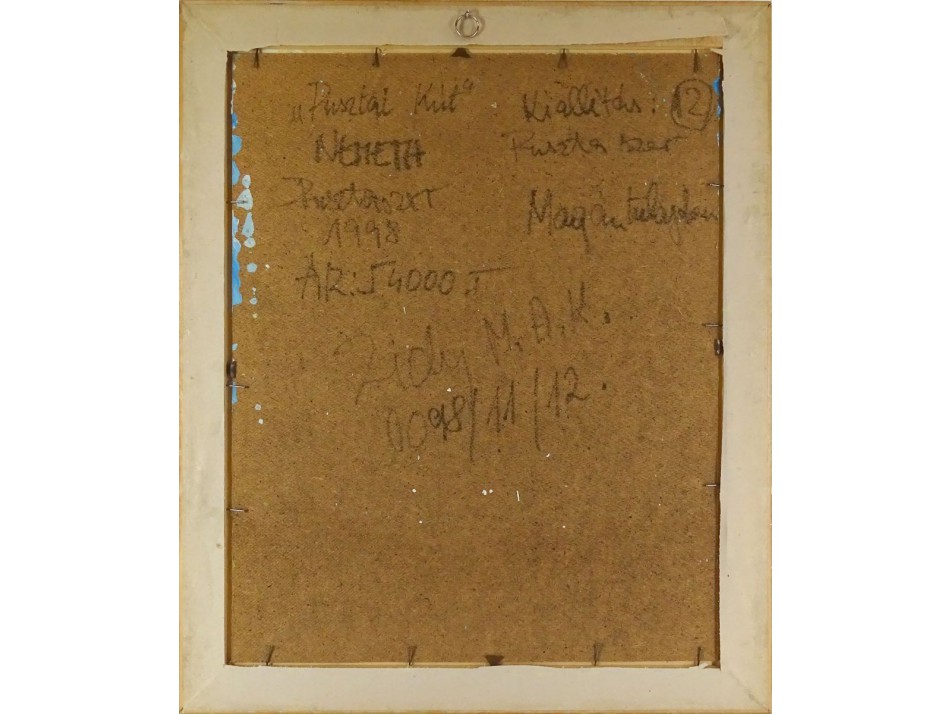 „Pusztai Kút"
NÉMETH
Pusztaszer
1998
ÁR: 54000.-
Kiállítás: 12
Pusztaszer
Magántulajdon
Zichy M.A.K.
0098/11/12.